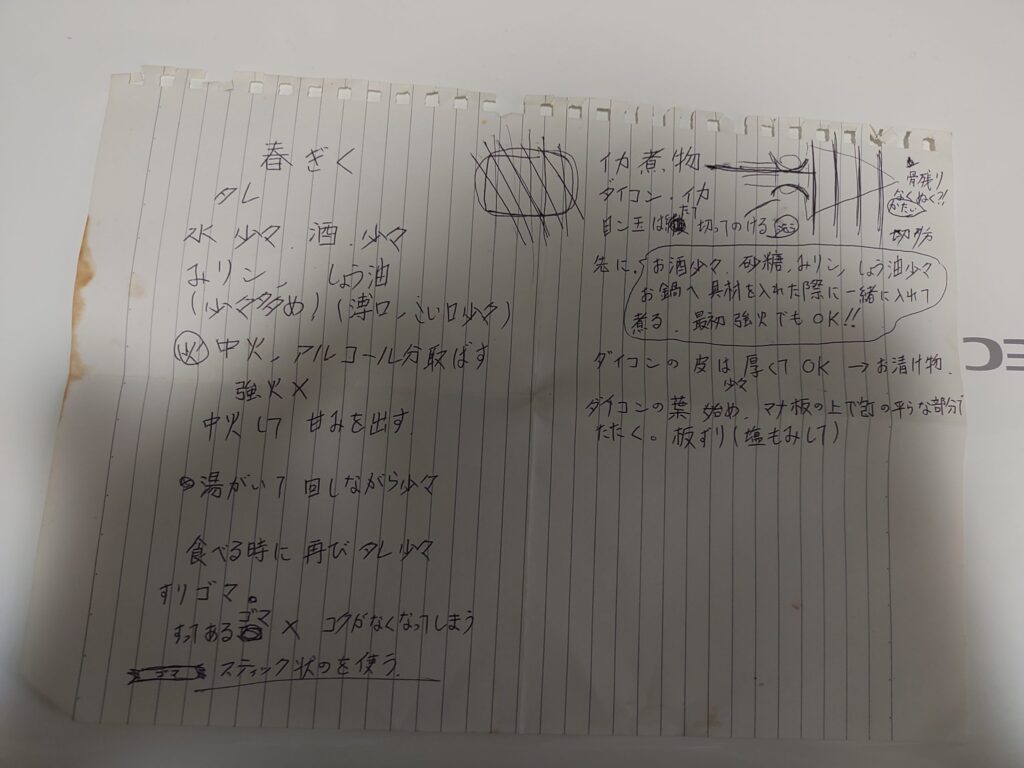 春ぎく
タレ
水 少々、酒、少々
みリン、しょう油
(少々多め) (薄口、こい口少々)
火 中火、アルコール分取ばす
強火×
中火して 甘みを出す
湯がいて 回しながら少々
食べる時に 再び タレ少々
すりゴマ。
すってあるゴマ × コクがなくなってしまう
スティック状のを使う.
イカ煮物
ダイコン、イカ
目ン玉は たて 切ってのける
骨残り
なくぬく?!
かたい
切り方
先に、お酒少々、砂糖、みリン、しょう油少々
お鍋へ 具材を入れた際に一緒に入れて
煮る。最初強火でもOK!!
ダイコンの皮は厚くてOK → お漬け物.
少々
ダイコンの葉 始め、マナ板の上で包の平らな部分で
たたく。板ずり(塩もみして)
EC